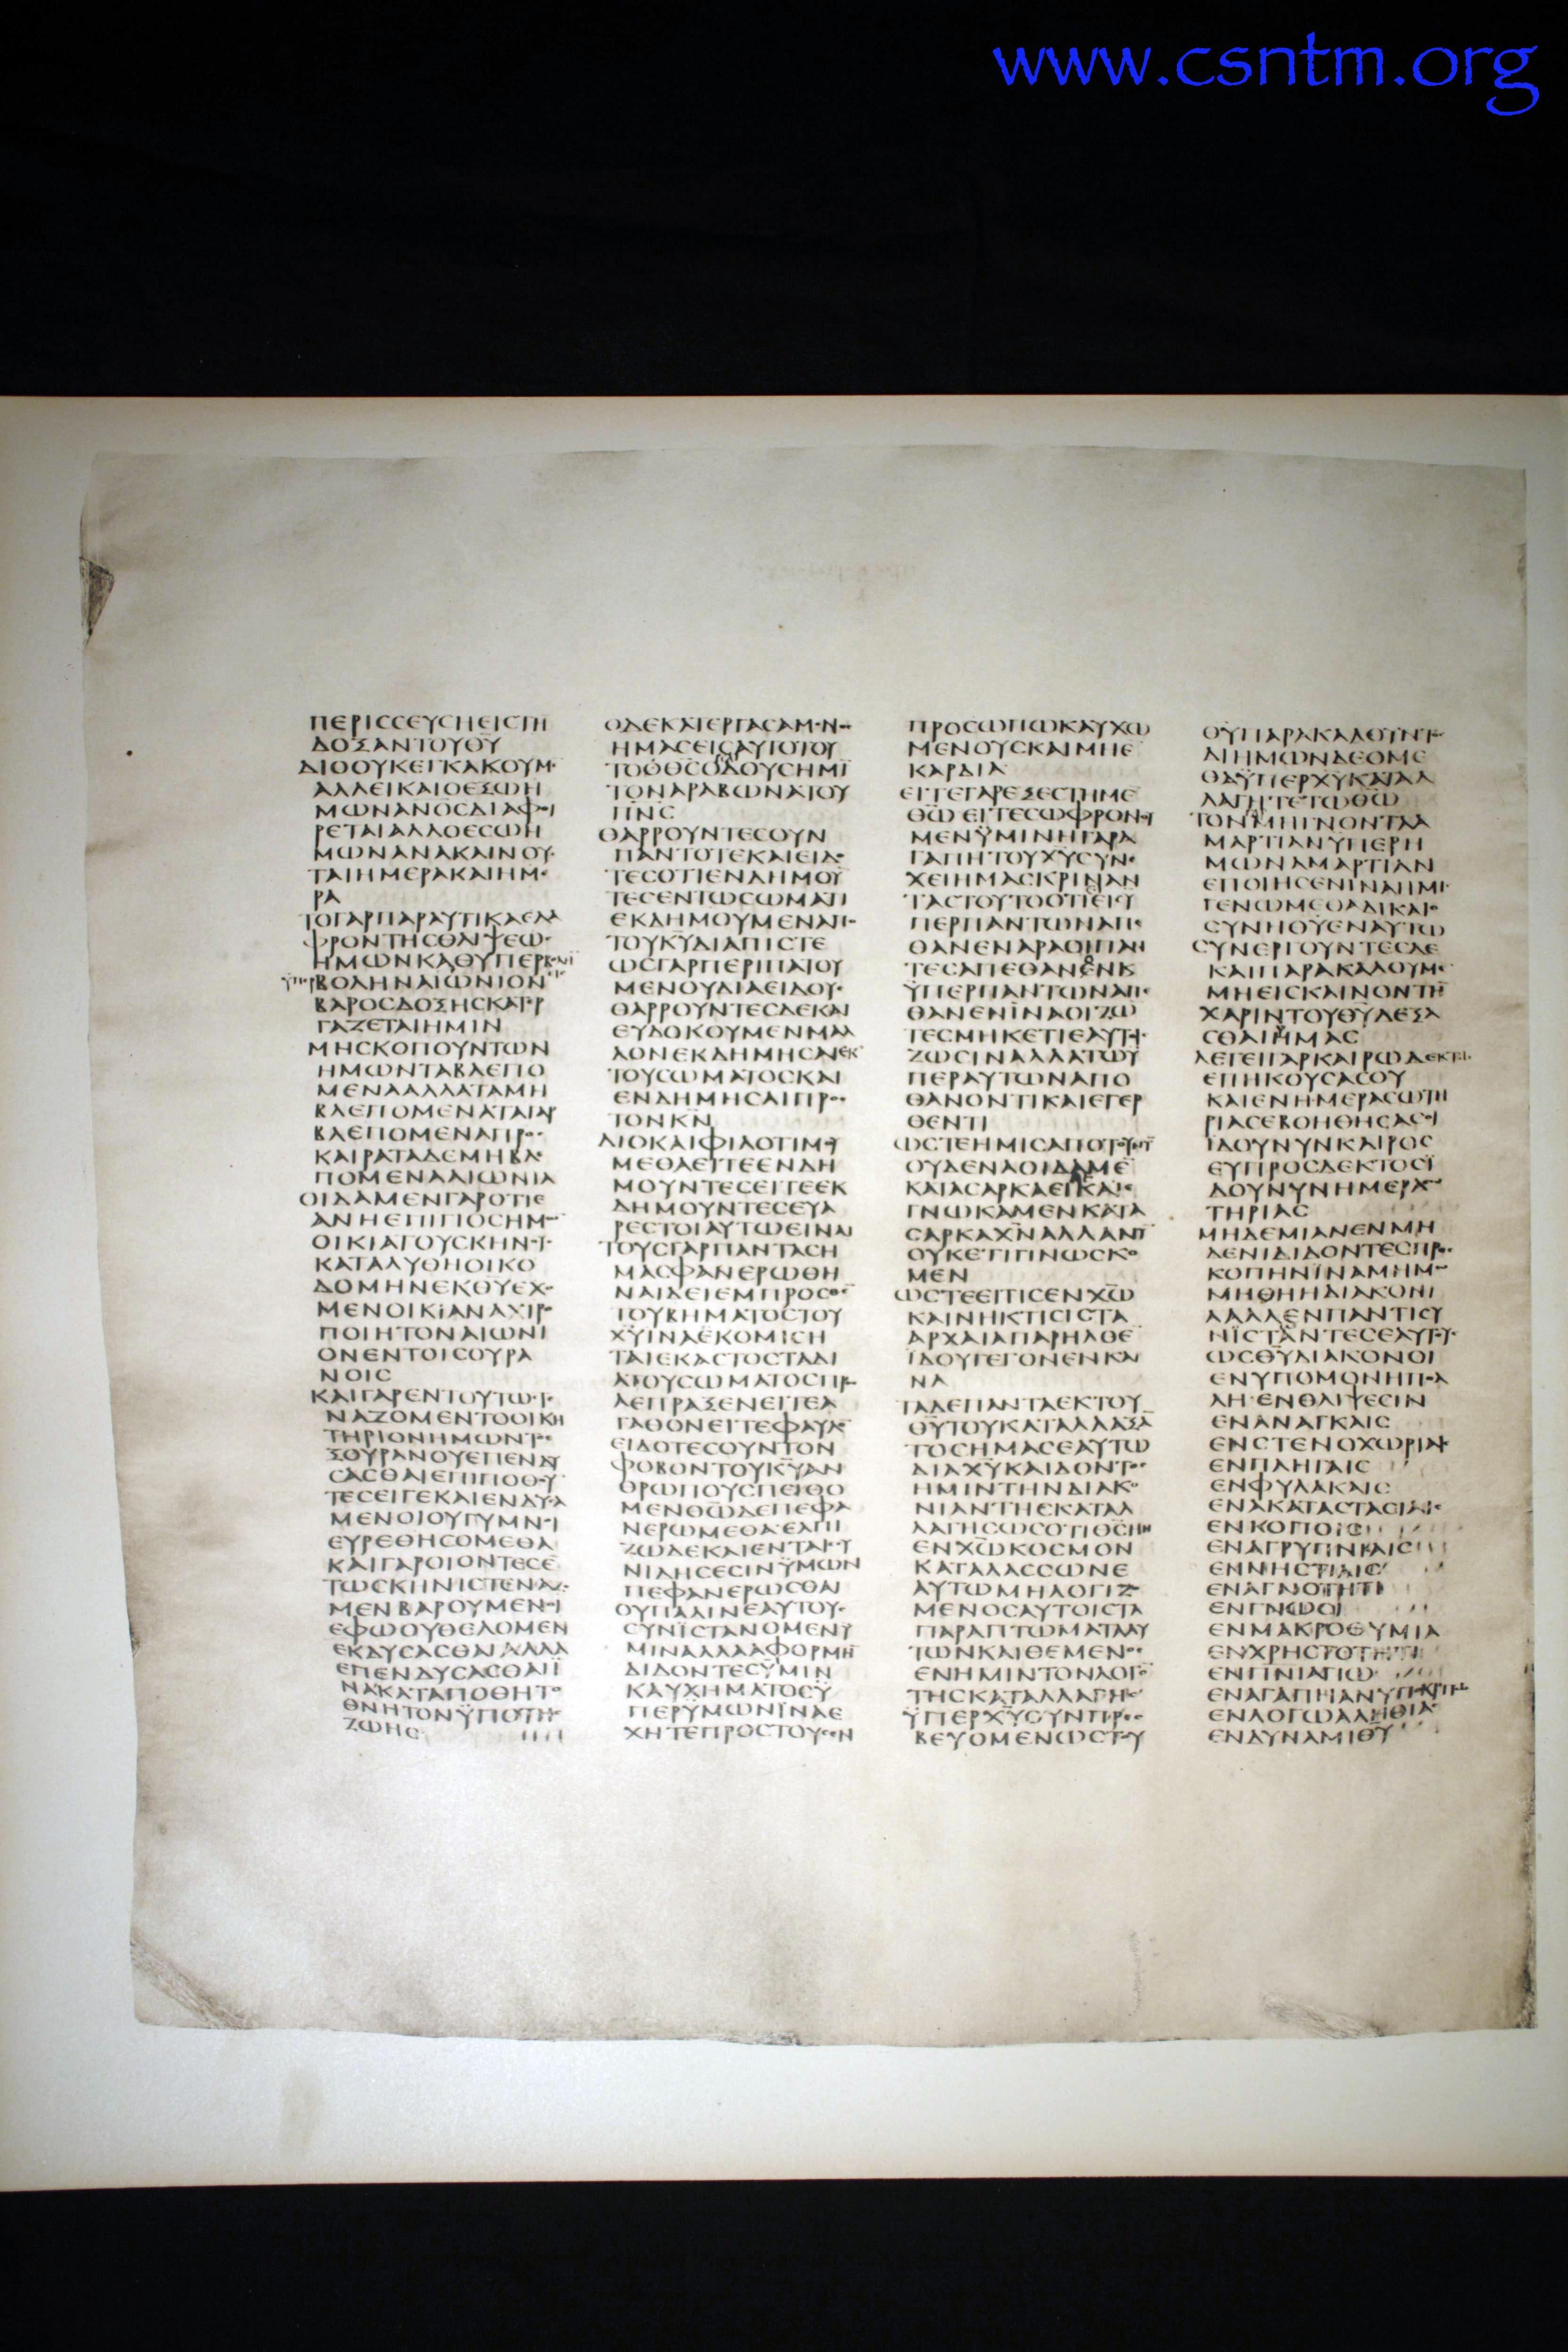 www.csntm.org
ΠΕΡΙССΕΥСΗΕΙСΤΗ
ΔΟΞΑΝΤΟΥΘΥ
ΔΙΟΟΥΚΕΓΚΑΚΟΥΜΕ
ΑΛΛΕΙΚΑΙΟΕΞΩΗ
ΜΩΝΑΝΟСΔΙΑΦΘΙ
ΡΕΤΑΙΑΛΛΟΕСΩΗ
ΜΩΝΑΝΑΚΑΙΝΟΥ
ΤΑΙΗΜΕΡΑΚΑΙΗΜΕ
ΡΑ
ΤΟΓΑΡΠΑΡΑΥΤΙΚΑΕΛΑ
ΦΡΟΝΤΗСΘΛΙΨΕΩС
ΗΜΩΝΚΑΘΥΠΕΡΒ
ΒΟΛΗΝΑΙΩΝΙΟΝ
ΒΑΡΟСΔΟΞΗСΚΑΤΕΡ
ΓΑΖΕΤΑΙΗΜΙΝ
ΜΗСΚΟΠΟΥΝΤΩΝ
ΗΜΩΝΤΑΒΛΕΠΟ
ΜΕΝΑΑΛΛΑΤΑΜΗ
ΒΛΕΠΟΜΕΝΑΤΑΓΑΡ
ΒΛΕΠΟΜΕΝΑΠΡΟС
ΚΑΙΡΑΤΑΔΕΜΗΒΛΕ
ΠΟΜΕΝΑΑΙΩΝΙΑ
ΟΙΔΑΜΕΝΓΑΡΟΤΙΕ
ΑΝΗΕΠΙΓΙΟСΗΜΩ
ΟΙΚΙΑΤΟΥСΚΗΝΟΥС
ΚΑΤΑΛΥΘΗΟΙΚΟ
ΔΟΜΗΝΕΚΘΥΕΧΟ
ΜΕΝΟΙΚΙΑΝΑΧΙΡΟ
ΠΟΙΗΤΟΝΑΙΩΝΙ
ΟΝΕΝΤΟΙСΟΥΡΑ
ΝΟΙС
ΚΑΙΓΑΡΕΝΤΟΥΤΩСΤΕ
ΝΑΖΟΜΕΝΤΟΟΙΚΗ
ΤΗΡΙΟΝΗΜΩΝΤΟΕ
ΞΟΥΡΑΝΟΥΕΠΕΝΔΥ
СΑСΘΑΙΕΠΙΠΟΘΟΥ
ΤΕСΕΙΓΕΚΑΙΕΝΔΥСΑ
ΜΕΝΟΙΟΥΓΥΜΝΟΙ
ΕΥΡΕΘΗСΟΜΕΘΑ
ΚΑΙΓΑΡΟΙΟΝΤΕСΕ
ΤΩСΚΗΝΙСΤΕΝΑΖΟ
ΜΕΝΒΑΡΟΥΜΕΝΟΙ
ΕΦΩΟΥΘΕΛΟΜΕΝ
ΕΚΔΥСΑСΘΑΙΑΛΛΑ
ΕΠΕΝΔΥСΑСΘΑΙΪ
ΝΑΚΑΤΑΠΟΘΗΤΟ
ΘΝΗΤΟΝΫΠΟΤΗС
ΖΩΗС
ΟΔΕΚΑΙΕΡΓΑСΑΜΕΝΟС
ΗΜΑСΕΙСΑΥΤΟΤΟΥ
ΤΟΟΘСΟΔΟΥСΗΜΙ
ΤΟΝΑΡΑΒΩΝΑΤΟΥ
ΠΝС
ΘΑΡΡΟΥΝΤΕСΟΥΝ
ΠΑΝΤΟΤΕΚΑΙΕΙΔΟ
ΤΕСΟΤΙΕΝΔΗΜΟΥ
ΤΕСΕΝΤΩСΩΜΑΤΙ
ΕΚΔΗΜΟΥΜΕΝΑΠΟ
ΤΟΥΚΥΔΙΑΠΙСΤΕ
ΩСΓΑΡΠΕΡΙΠΑΤΟΥ
ΜΕΝΟΥΔΙΑΕΙΔΟΥС
ΘΑΡΡΟΥΝΤΕСΔΕΚΑΙ
ΕΥΔΟΚΟΥΜΕΝΜΑΛ
ΛΟΝΕΚΔΗΜΗСΑΙΕΚ
ΤΟΥСΩΜΑΤΟСΚΑΙ
ΕΝΔΗΜΗСΑΙΠΡΟС
ΤΟΝΚΝ
ΔΙΟΚΑΙΦΙΛΟΤΙΜΟΥ
ΜΕΘΑΕΙΤΕΕΝΔΗ
ΜΟΥΝΤΕСΕΙΤΕΕΚ
ΔΗΜΟΥΝΤΕСΕΥΑ
ΡΕСΤΟΙΑΥΤΩΕΙΝΑΙ
ΤΟΥСΓΑΡΠΑΝΤΑСΗ
ΜΑСΦΑΝΕΡΩΘΗ
ΝΑΙΔΕΙΕΜΠΡΟСΘΕ
ΤΟΥΒΗΜΑΤΟСΤΟΥ
ΧΥΙΝΑΕΚΟΜΙСΗ
ΤΑΙΕΚΑСΤΟСΤΑΔΙ
ΑΤΟΥСΩΜΑΤΟСΠΡ
ΑΕΠΡΑΞΕΝΕΙΤΕΑ
ΓΑΘΟΝΕΙΤΕΦΑΥΛΟ
ΕΙΔΟΤΕСΟΥΝΤΟΝ
ΦΟΒΟΝΤΟΥΚΥΑΝ
ΘΡΩΠΟΥСΠΕΙΘΟ
ΜΕΝΘΩΔΕΠΕΦΑ
ΝΕΡΩΜΕΘΑΕΛΠΙ
ΖΩΔΕΚΑΙΕΝΤΑΙСΥ
ΝΙΔΗСΕСΙΝΫΜΩΝ
ΠΕΦΑΝΕΡΩСΘΑΙ
ΟΥΠΑΛΙΝΕΑΥΤΟΥС
СΥΝΙСΤΑΝΟΜΕΝΥ
ΜΙΝΑΛΛΑΑΦΟΡΜΗ
ΔΙΔΟΝΤΕСΫΜΙΝ
ΚΑΥΧΗΜΑΤΟСΫ
ΠΕΡΫΜΩΝΪΝΑΕ
ΧΗΤΕΠΡΟСΤΟΥСΕΝ
ΠΡΟСΩΠΩΚΑΥΧΩ
ΜΕΝΟΥСΚΑΙΜΗΕ
ΚΑΡΔΙΑ
ΕΙΤΕΓΑΡΕΞΕСΤΗΜΕ
ΘΩΕΙΤΕСΩΦΡΟΝΟΥ
ΜΕΝΫΜΙΝΗΓΑΡΑ
ΓΑΠΗΤΟΥΧΥСΥΝΕ
ΧΕΙΗΜΑСΚΡΙΝΑΝ
ΤΑСΤΟΥΤΟΟΤΙΕΙСΥ
ΠΕΡΠΑΝΤΩΝΑΠΕ
ΘΑΝΕΝΑΡΑΟΙΠΑΝ
ΤΕСΑΠΕΘΑΝΟΝΚ
ΫΠΕΡΠΑΝΤΩΝΑΠΕ
ΘΑΝΕΝΪΝΑΟΙΖΩ
ΤΕСΜΗΚΕΤΙΕΑΥΤΟΙС
ΖΩСΙΝΑΛΛΑΤΩΥ
ΠΕΡΑΥΤΩΝΑΠΟ
ΘΑΝΟΝΤΙΚΑΙΕΓΕΡ
ΘΕΝΤΙ
ΩСΤΕΗΜΙСΑΠΟΤΟΥΝΥ
ΟΥΔΕΝΑΟΙΔΑΜΕ
ΚΑΤΑСΑΡΚΑΕΙΚΑΙΕ
ΓΝΩΚΑΜΕΝΚΑΤΑ
СΑΡΚΑΧΝΑΛΛΑΝΥ
ΟΥΚΕΤΙΓΙΝΩСΚΟ
ΜΕΝ
ΩСΤΕΕΙΤΙСΕΝΧΩ
ΚΑΙΝΗΚΤΙСΙСΤΑ
ΑΡΧΑΙΑΠΑΡΗΛΘΕ
ΪΔΟΥΓΕΓΟΝΕΝΚΑΙ
ΝΑ
ΤΑΔΕΠΑΝΤΑΕΚΤΟΥ
ΘΥΤΟΥΚΑΤΑΛΛΑΞΑ
ΤΟСΗΜΑСΕΑΥΤΩ
ΔΙΑΧΥΚΑΙΔΟΝΤΟС
ΗΜΙΝΤΗΝΔΙΑΚΟ
ΝΙΑΝΤΗСΚΑΤΑΛ
ΛΑΓΗСΩСΟΤΙΘСΗΝ
ΕΝΧΩΚΟСΜΟΝ
ΚΑΤΑΛΑССΩΝΕ
ΑΥΤΩΜΗΛΟΓΙΖΟ
ΜΕΝΟСΑΥΤΟΙСΤΑ
ΠΑΡΑΠΤΩΜΑΤΑΑΥ
ΤΩΝΚΑΙΘΕΜΕΝΟС
ΕΝΗΜΙΝΤΟΝΛΟΓΟ
ΤΗСΚΑΤΑΛΛΑΓΗС
ΫΠΕΡΧΥΟΥΝΠΡΕС
ΒΕΥΟΜΕΝΩСΤΟΥ
ΘΥΠΑΡΑΚΑΛΟΥΝΤ
ΔΙΗΜΩΝΔΕΟΜΕ
ΘΑΫΠΕΡΧΥΚΑΤΑΛ
ΛΑΓΗΤΕΤΩΘΩ
ΤΟΝΜΗΓΝΟΝΤΑΑ
ΜΑΡΤΙΑΝΥΠΕΡΗ
ΜΩΝΑΜΑΡΤΙΑΝ
ΕΠΟΙΗСΕΝΙΝΑΗΜΙС
ΓΕΝΩΜΕΘΑΔΙΚΑΙΟ
СΥΝΗΘΥΕΝΑΥΤΩ
СΥΝΕΡΓΟΥΝΤΕСΔΕ
ΚΑΙΠΑΡΑΚΑΛΟΥΜΕ
ΜΗΕΙСΚΑΙΝΟΝΤΗ
ΧΑΡΙΝΤΟΥΘΥΔΕΞΑ
СΘΑΙΗΜΑС
ΛΕΓΕΙΓΑΡΚΑΙΡΩΔΕΚΤΩ
ΕΠΗΚΟΥСΑСΟΥ
ΚΑΙΕΝΗΜΕΡΑСΩΤΗ
ΡΙΑСΕΒΟΗΘΗСΑСΟΙ
ΙΔΟΥΝΥΝΚΑΙΡΟС
ΕΥΠΡΟСΔΕΚΤΟСΪ
ΔΟΥΝΥΝΗΜΕΡΑСΩ
ΤΗΡΙΑС
ΜΗΔΕΜΙΑΝΕΝΜΗ
ΔΕΝΙΔΙΔΟΝΤΕСΠΡΟС
ΚΟΠΗΝΙΝΑΜΗΜΩ
ΜΗΘΗΗΔΙΑΚΟΝΙ
ΑΑΛΛΕΝΠΑΝΤΙСΥ
ΝΪСΤΑΝΤΕСΕΑΥΤΟΥС
ΩСΘΥΔΙΑΚΟΝΟΙ
ΕΝΥΠΟΜΟΝΗΠΟΛ
ΛΗΕΝΘΛΙΨΕСΙΝ
ΕΝΑΝΑΓΚΑΙС
ΕΝСΤΕΝΟΧΩΡΙΑΙС
ΕΝΠΛΗΓΑΙС
ΕΝΦΥΛΑΚΑΙС
ΕΝΑΚΑΤΑСΤΑСΙΑΙС
ΕΝΚΟΠΟΙС
ΕΝΑΓΡΥΠΝΙΑΙС
ΕΝΝΗСΤΙΑΙС
ΕΝΑΓΝΟΤΗΤΙ
ΕΝΓΝΩСΙ
ΕΝΜΑΚΡΟΘΥΜΙΑ
ΕΝΧΡΗСΤΟΤΗΤΙ
ΕΝΠΝΙΑΓΙΩ
ΕΝΑΓΑΠΗΑΝΥΠΟΚΡΙΤΩ
ΕΝΛΟΓΩΑΛΗΘΙΑС
ΕΝΔΥΝΑΜΙΘΥ